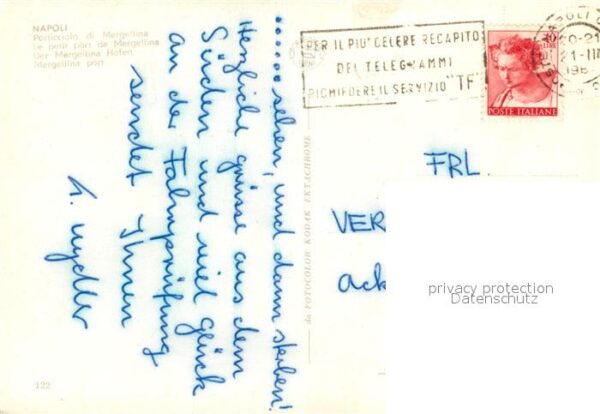 NAPOLI
Porticciolo di Mergellina
Le petit port de Mergellina
Der Mergellina Hafen
Mergellina port
PER IL PIU' CELERE RECAPITO
DEI TELEGRAMMI
RICHIEDERE IL SERVIZIO "TF"
20-21
21-III
196
POSTE ITALIANE
...... sehen, und dann sterben!
Herzliche grüsse aus dem
Süden und viel Glück
an der Fahrprüfung
sendet Ihnen
da FOTOCOLOR KODAK EKTACHROME
FRL.
VER
ack
privacy protection
Datenschutz
122